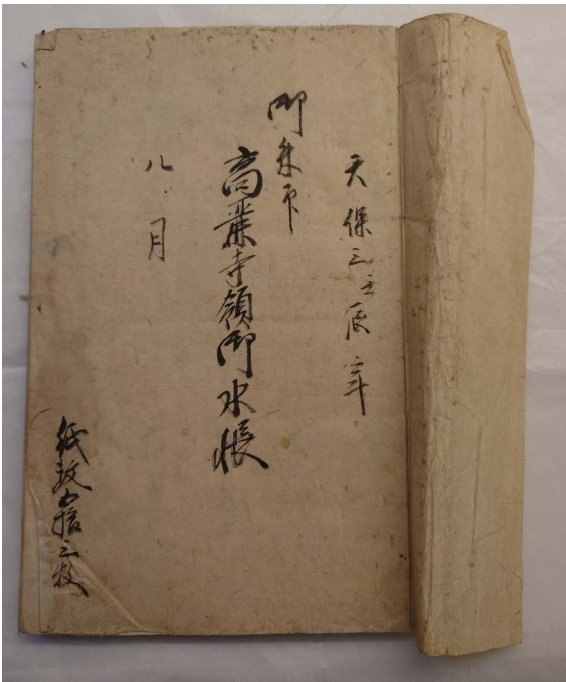 天保三壬辰年
御朱印
高乗寺領御水帳
八月
紙数五拾三枚